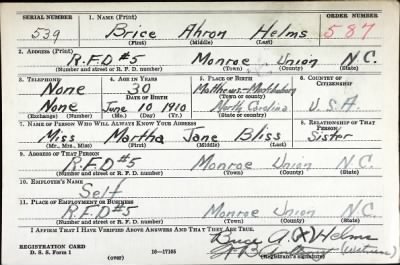 SERIAL NUMBER 1. NAME (Print) ORDER NUMBER
539 Brice Ahron Helms 587
(First) (Middle) (Last)
2. ADDRESS (Print)
R.F.D #5 Monroe Union N.C.
(Number and street or R. F. D. number) (Town) (County) (State)
3. TELEPHONE 4. AGE IN YEARS 5. PLACE OF BIRTH 6. COUNTRY OF CITIZENSHIP
None 30 Matthews-
DATE OF BIRTH (Town or county)
None June 10 1910 North Carolina U.S.A
(Exchange) (Number) (Mo.) (Day) (Yr.) (State or country)
7. NAME OF PERSON WHO WILL ALWAYS KNOW YOUR ADDRESS 8. RELATIONSHIP OF THAT PERSON
Miss Martha Jane Bliss Sister
(Mr., Mrs., Miss) (First) (Middle) (Last)
9. ADDRESS OF THAT PERSON
R.F.D #5 Monroe Union N.C.
(Number and street or R. F. D. number) (Town) (County) (State)
10. EMPLOYER'S NAME
Self
11. PLACE OF EMPLOYMENT OR BUSINESS
R.F.D #5 Monroe Union N.C.
(Number and street or R. F. D. number) (Town) (County) (State)
I AFFIRM THAT I HAVE VERIFIED ABOVE ANSWERS AND THAT THEY ARE TRUE.
Brice A. (X) Helms
REGISTRATION CARD
D. S. S. Form 1 16—17105 (Witness)
(over) (Registrant's signature)